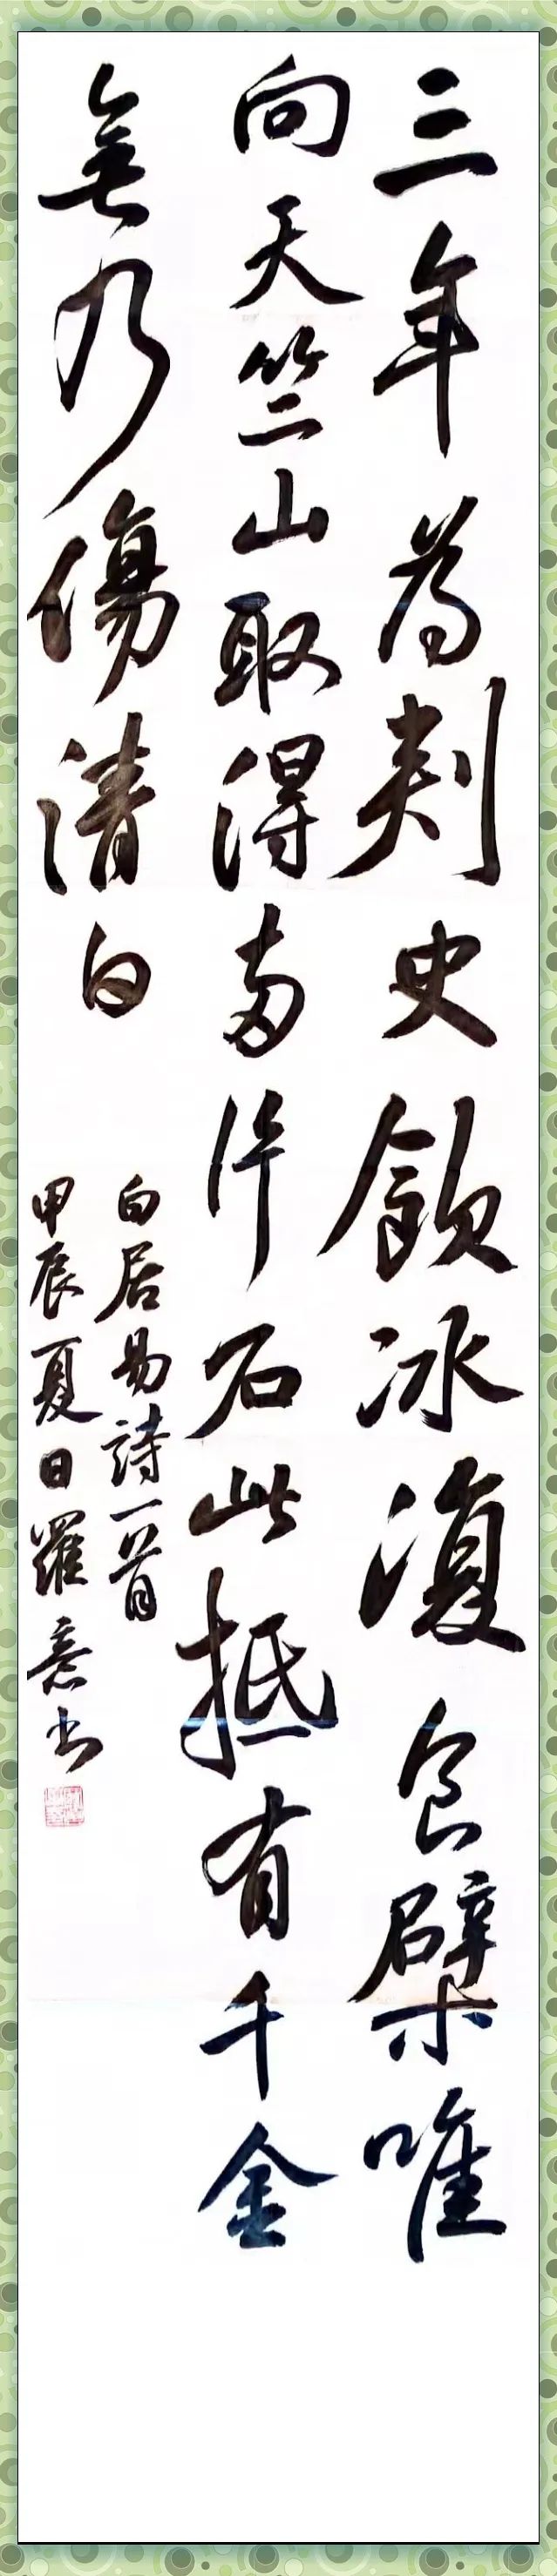 三年為刾史飲冰復食檗唯
向天竺山取得兩片石此抵有千金
無乃傷清白
白居易詩一首
甲辰夏日羅意书